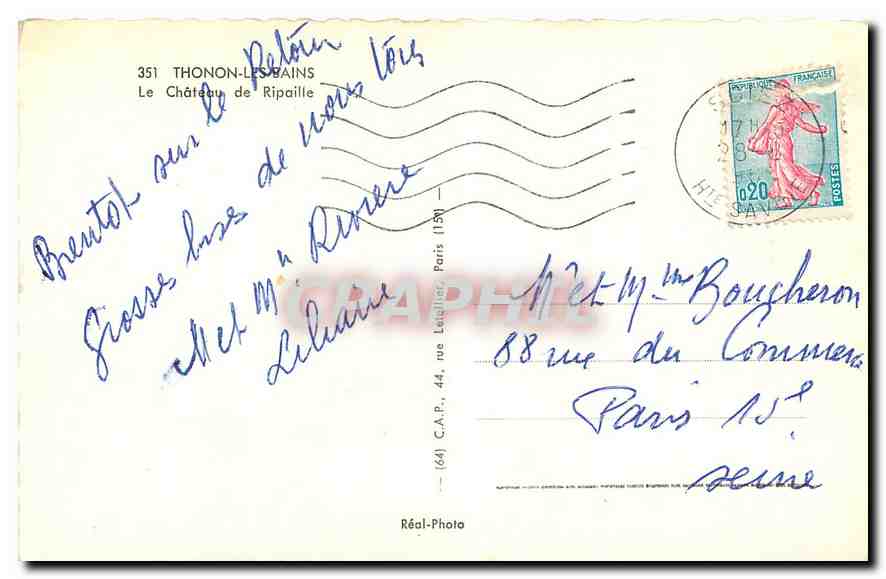 351 THONON-LES-BAINS
Le Château de Ripaille
Bientot sur le Retour
Grosses bises de nous tous
M et Me Riviere
Liliane
(64) C.A.P., 44, rue Letellier, Paris (15e)
REPUBLIQUE FRANÇAISE
0,20
POSTES
17H
28
Hte SAVOIE
CRAPHEL
M. et Mme Boucheron
88 rue du Commerce
Paris 15e
Seine
Réal-Photo